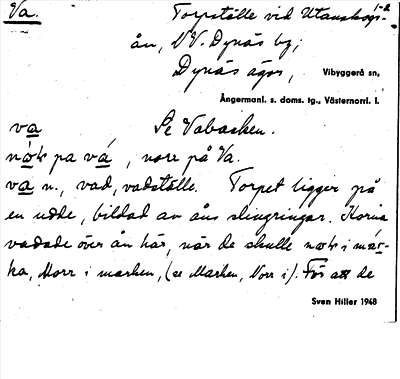 Va. Torpställe vid Utanskogs- 1-2
ån, NV. Dynäs by;
Dynäs ägor, Vibyggerå sn,
Ångermanl. s. doms. tg., Västernorrl. l.
va Se Vabacken.
nǫ̀k pa vá, norr på Va.
va n., vad, vadställe. Torpet ligger på
en udde, bildad av åns slingringar. Korna
vadade över ån här, när de skulle
ka, Norr i marken, (se Marken, Norr i). För att de
Sven Hiller 1948